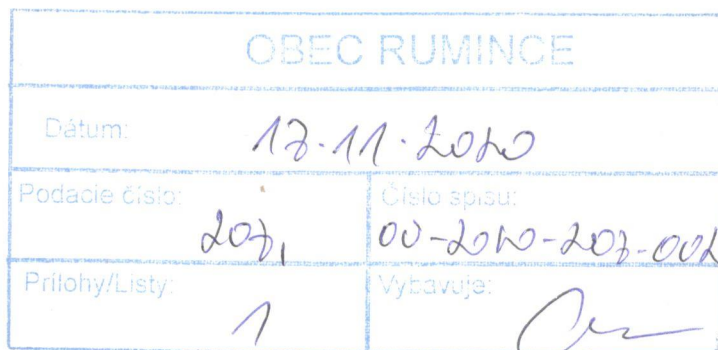 OBEC RUMINCE
Dátum: 17.11.2020
Podacie číslo: Číslo spisu:
207, OU-2020-207-002
Prílohy/Listy: Vybavuje:
1